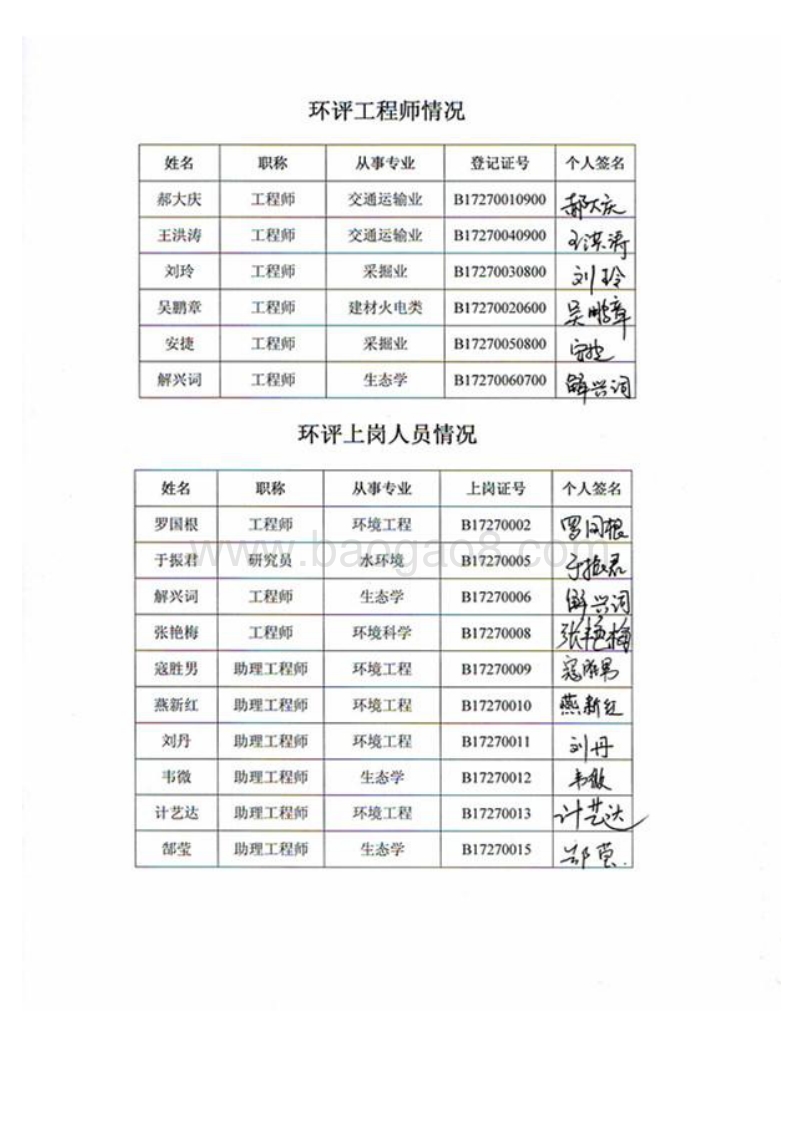 环评工程师情况
姓名 职称 从事专业 登记证号 个人签名
郝大庆 工程师 交通运输业 B17270010900 郝大庆
王洪涛 工程师 交通运输业 B17270040900 王洪涛
刘玲 工程师 采掘业 B17270030800 刘玲
吴鹏章 工程师 建材火电类 B17270020600 吴鹏章
安捷 工程师 采掘业 B17270050800 安捷
解兴词 工程师 生态学 B17270060700 解兴词
环评上岗人员情况
姓名 职称 从事专业 上岗证号 个人签名
罗国根 工程师 环境工程 B17270002 罗国根
于振君 研究员 水环境 B17270005 于振君
解兴词 工程师 生态学 B17270006 解兴词
张艳梅 工程师 环境科学 B17270008 张艳梅
寇胜男 助理工程师 环境工程 B17270009 寇胜男
燕新红 助理工程师 环境工程 B17270010 燕新红
刘丹 助理工程师 环境工程 B17270011 刘丹
韦微 助理工程师 生态学 B17270012 韦微
计艺达 助理工程师 环境工程 B17270013 计艺达
郜莹 助理工程师 生态学 B17270015 郜莹
www.baogao8.com